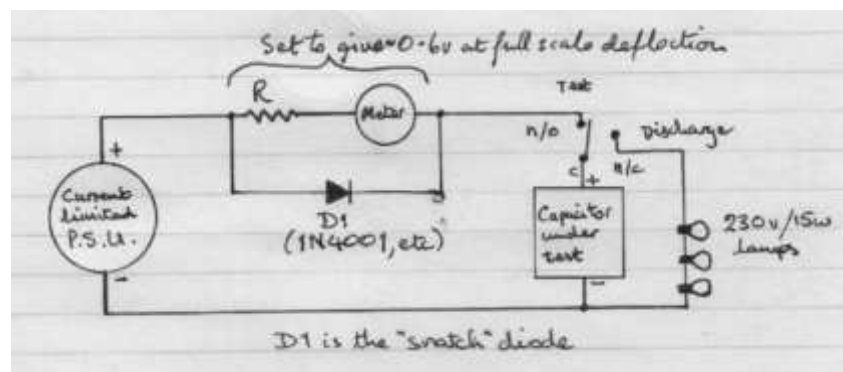 Set to give ~0.6v at full scale deflection
R
Meter
Test
n/o
Discharge
+
c
+
n/c
Current
limited
P.S.U.
D1
(1N4001, etc)
Capacitor
under
test
230v/15w
Lamps
-
-
D1 is the "snatch" diode